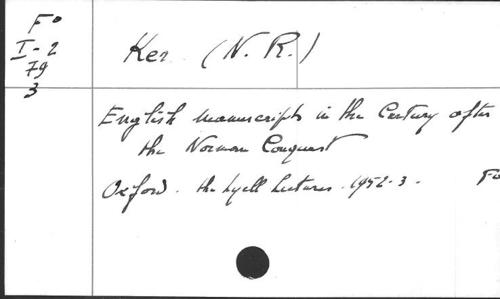 Fo
I-2
79
3
Ker (N. R.)
English manuscripts in the Century after
the Norman Conquest
Oxford. the Lyell Lectures. 1952-3.
Fo